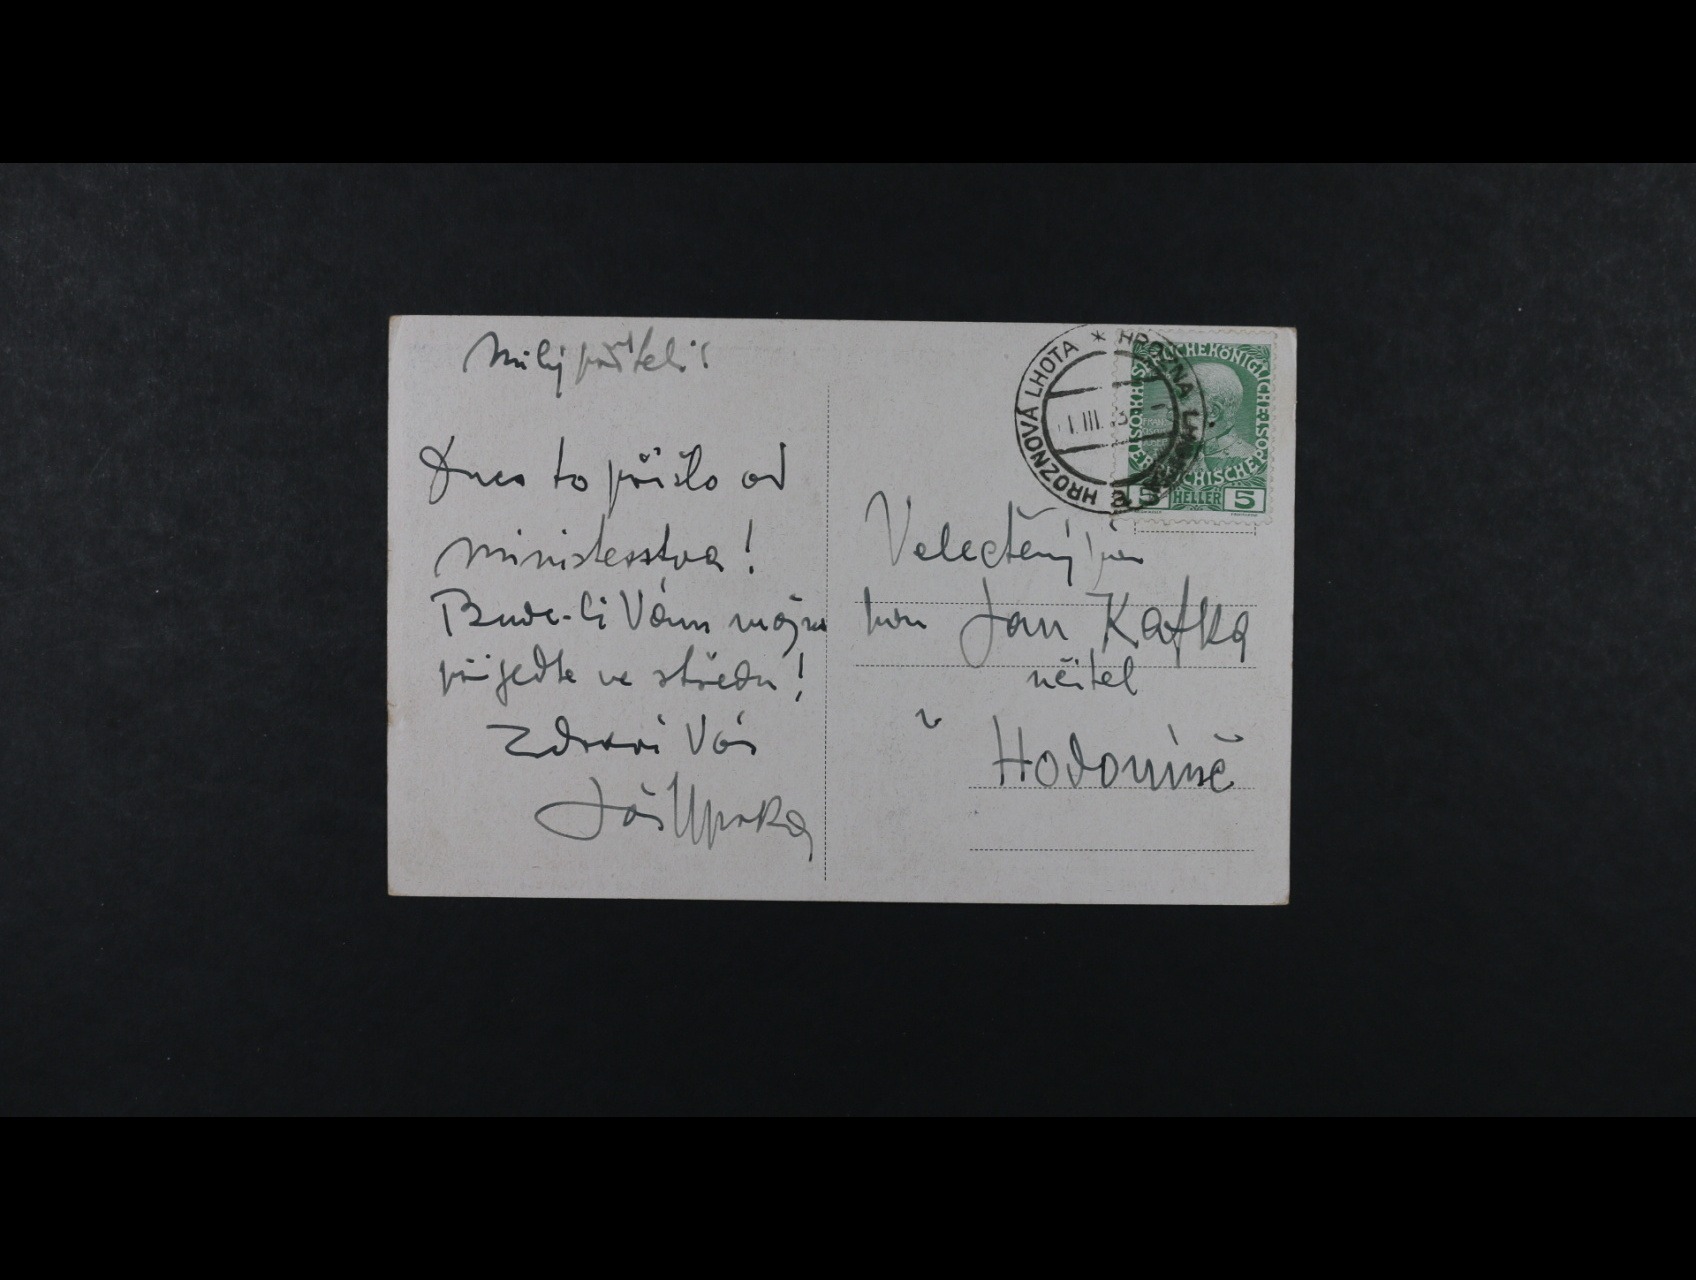 Milý příteli!
Dnes to přišlo od
ministerstva!
Bude-li Vám možno
přijeďte ve středu!
Zdraví Vás
Joža Uprka
HROZNOVÁ LHOTA * HROZNA LHOTA
1.III.13
KAIS KÖNIGLICHE ÖSTERREICHISCHE POST
5 HELLER 5
Velectěný pan
pan Jan Kafka
učitel
v
Hodoníně